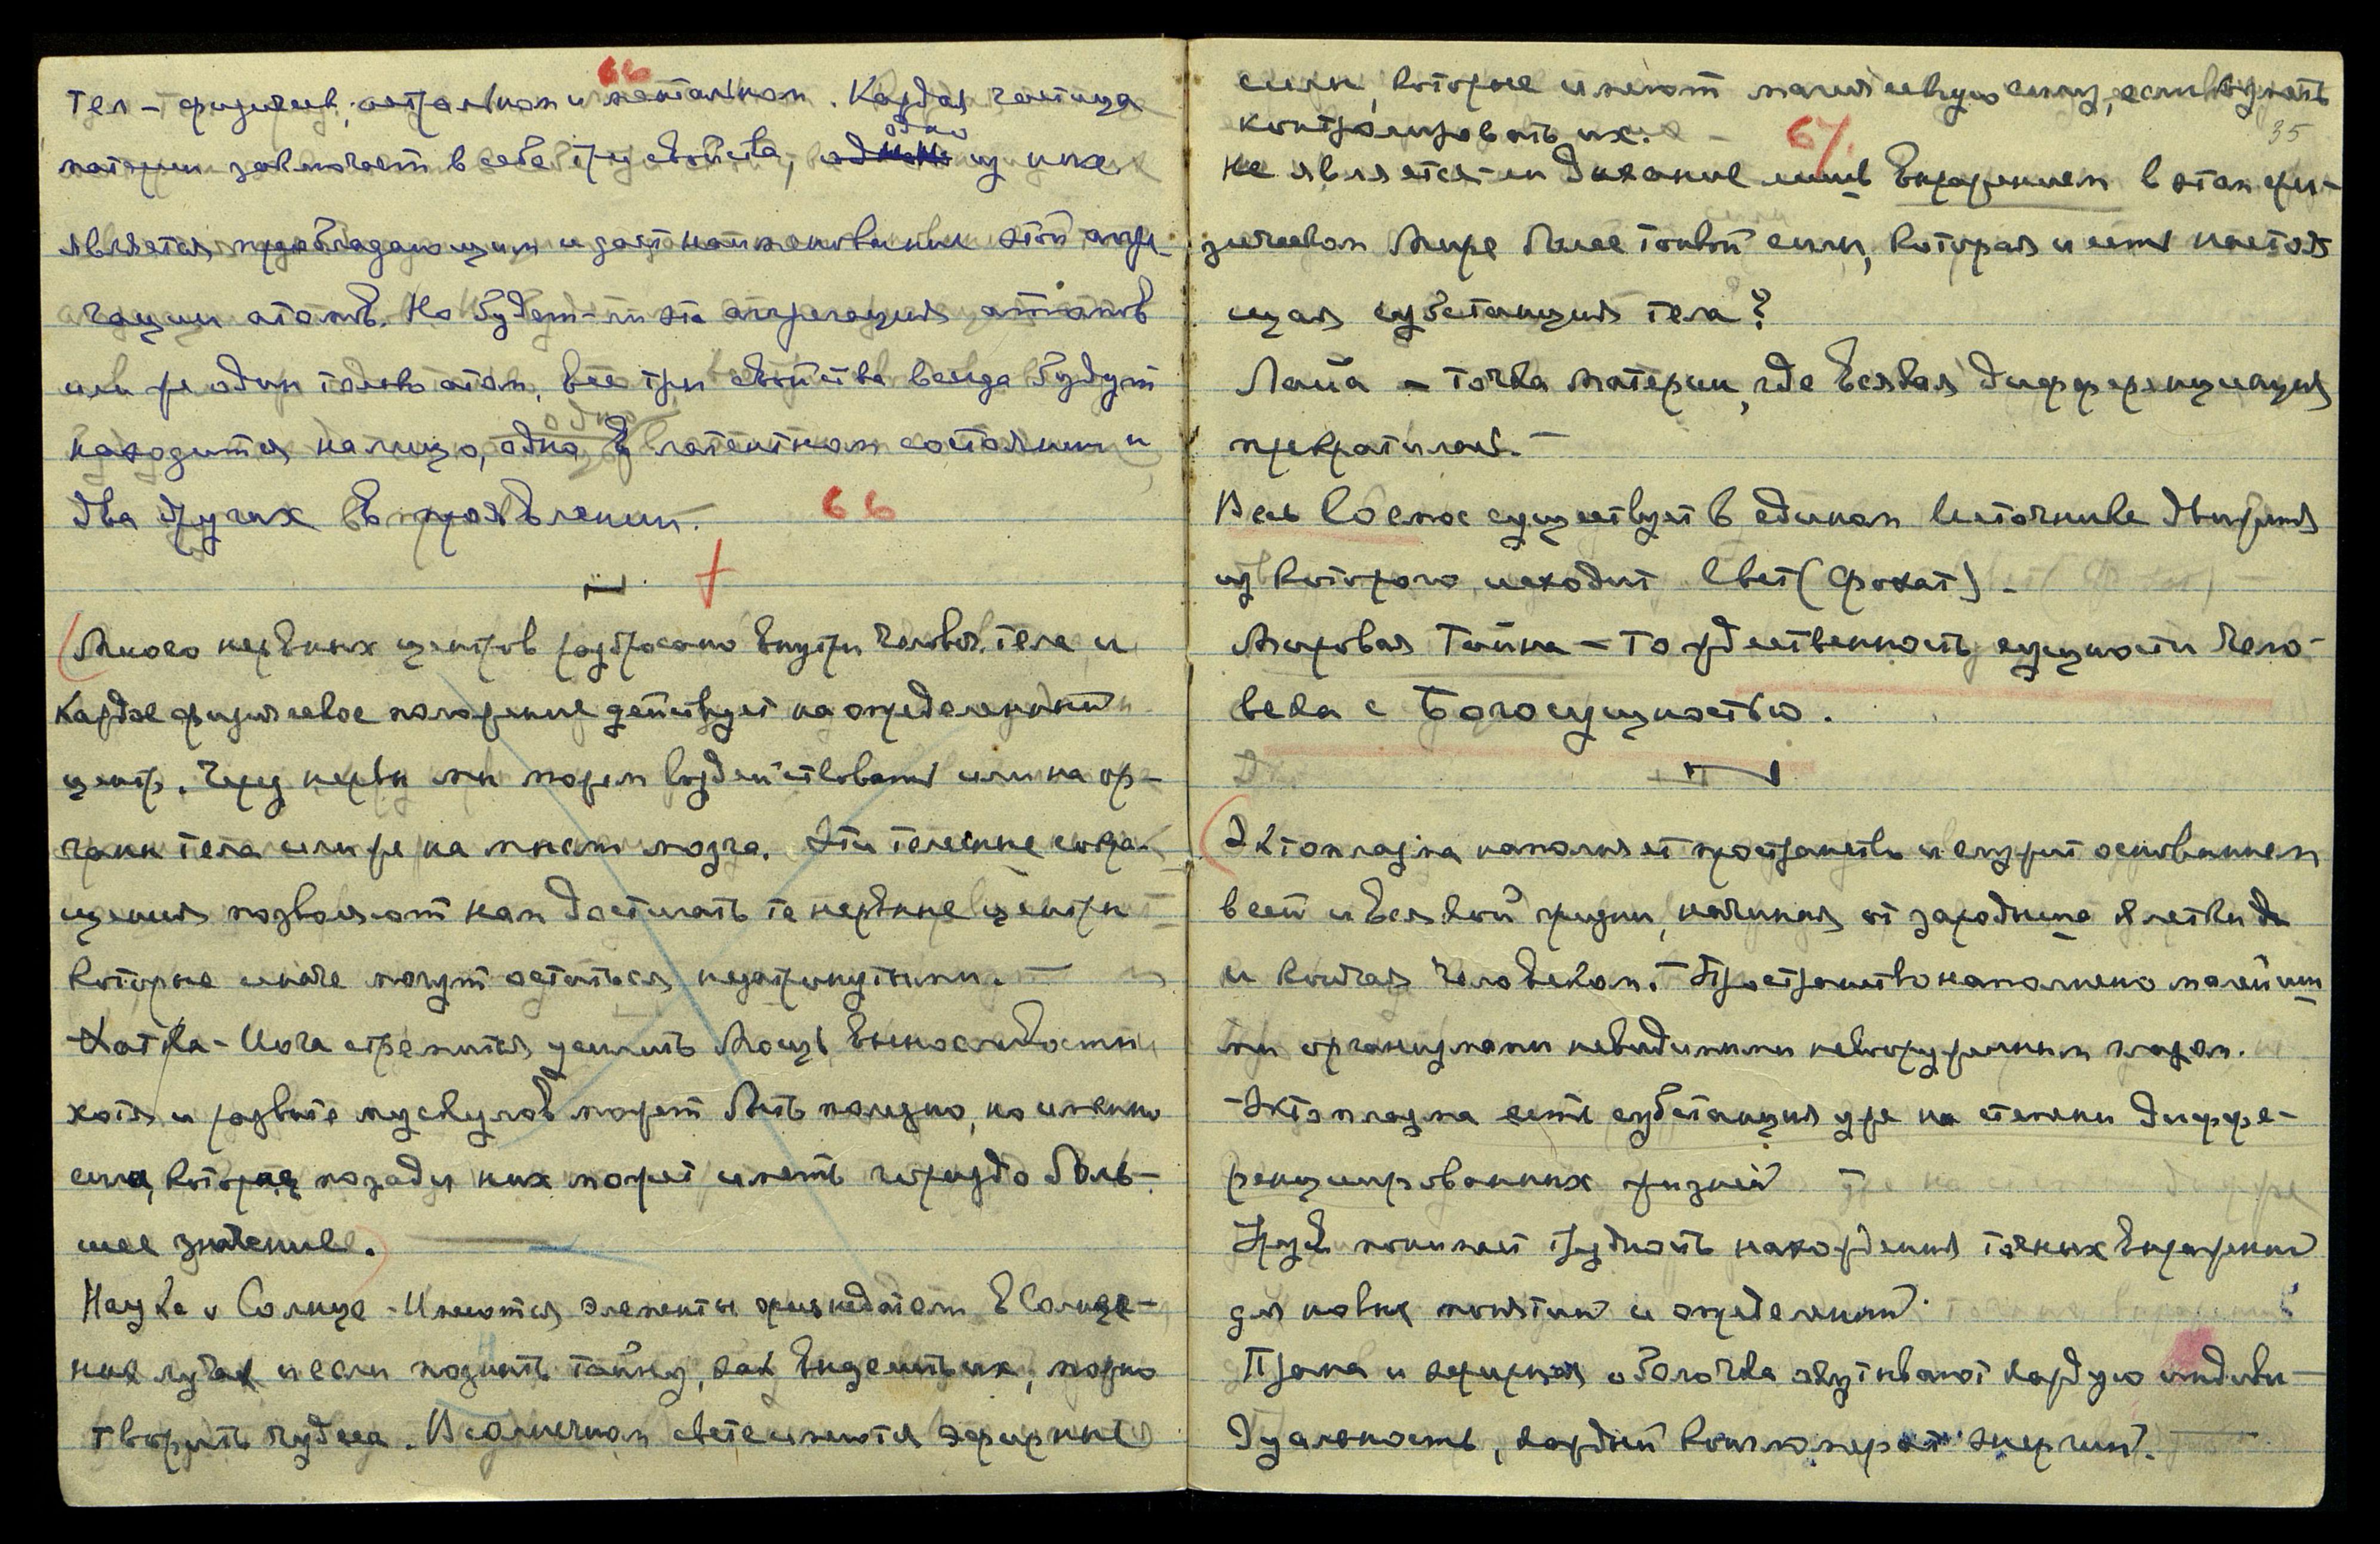 66
тел - физическ., астральном и ментальном. Каждая частица
одно
материи заключает в себе три свойства, из них
является преобладающим и дает наименование этой агре-
гации атомов. Но будет-ли это агрегация атомов
или же один только атом, все три свойства всегда будут
одно
находиться налицо, одна в латентном состоянии и
два других в проявлении.
66
(Много нервных центров разбросано внутри человеч. тела и
каждое физическое положение действует на определенный
центр. Через нервы мы можем воздействовать или на ор-
ганы тела или же на мозг. Эти телесные сокра-
щения позволяют нам достигать те нервные центры
которые иначе могут остаться незатронутыми. —
Хатха-Йога стремится усилить мощь выносливости
хотя и развитие мускулов может быть полезно, но именно
сила, которая позади них может иметь гораздо боль-
шее значение.)
Наука о Солнце - Имеются элементы жизнедатели в Солнеч-
ных лучах и если познать тайну, как выделить их, можно
творить чудеса. В солнечном свете имеются эфирные
силы, которые имеют магическую силу, если познать
контролировать их. -
67.
35
Не является-ли дыхание лишь выражением в этом фи-
зическом Мире более тонкой силы, которая и есть настоя-
щая субстанция тела?
Лайа - точка материи, где всякая дифференциация
прекратилась. —
Весь Космос существует в едином Источнике движения
из которого исходит Свет (Фохат) -
Мировая Тайна - тождественность сущности чело-
века с Богосущностью.
(Эктоплазма наполняет пространство и служит основанием
всей и всякой жизни, начиная от зародыша клетки до
и кончая человеком. Пространство наполнено малейши-
ми организмами невидимыми невооруженным глазом.
Эктоплазма есть субстанция уже на степени диффе-
ренцированных жизней
понимает трудность нахождения точных выражений
для новых понятий и определений.
Прана и эфирная оболочка окутывают каждую индиви-
дуальность, каждый конгломерат энергий. —